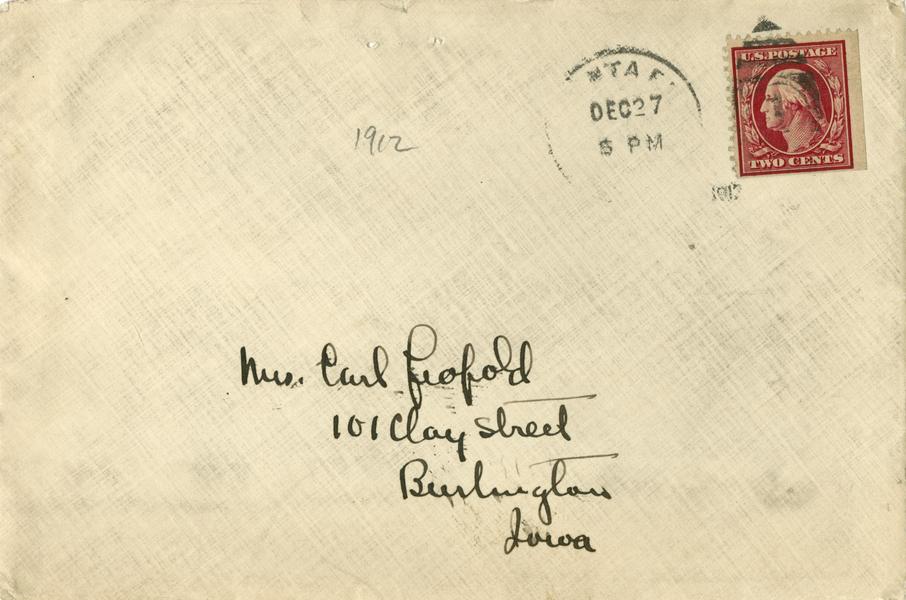 NTA F
DEC 27
5 PM
1912
U.S. POSTAGE
TWO CENTS
1912
Mrs. Carl Leopold
101 Clay Street
Burlington
Iowa